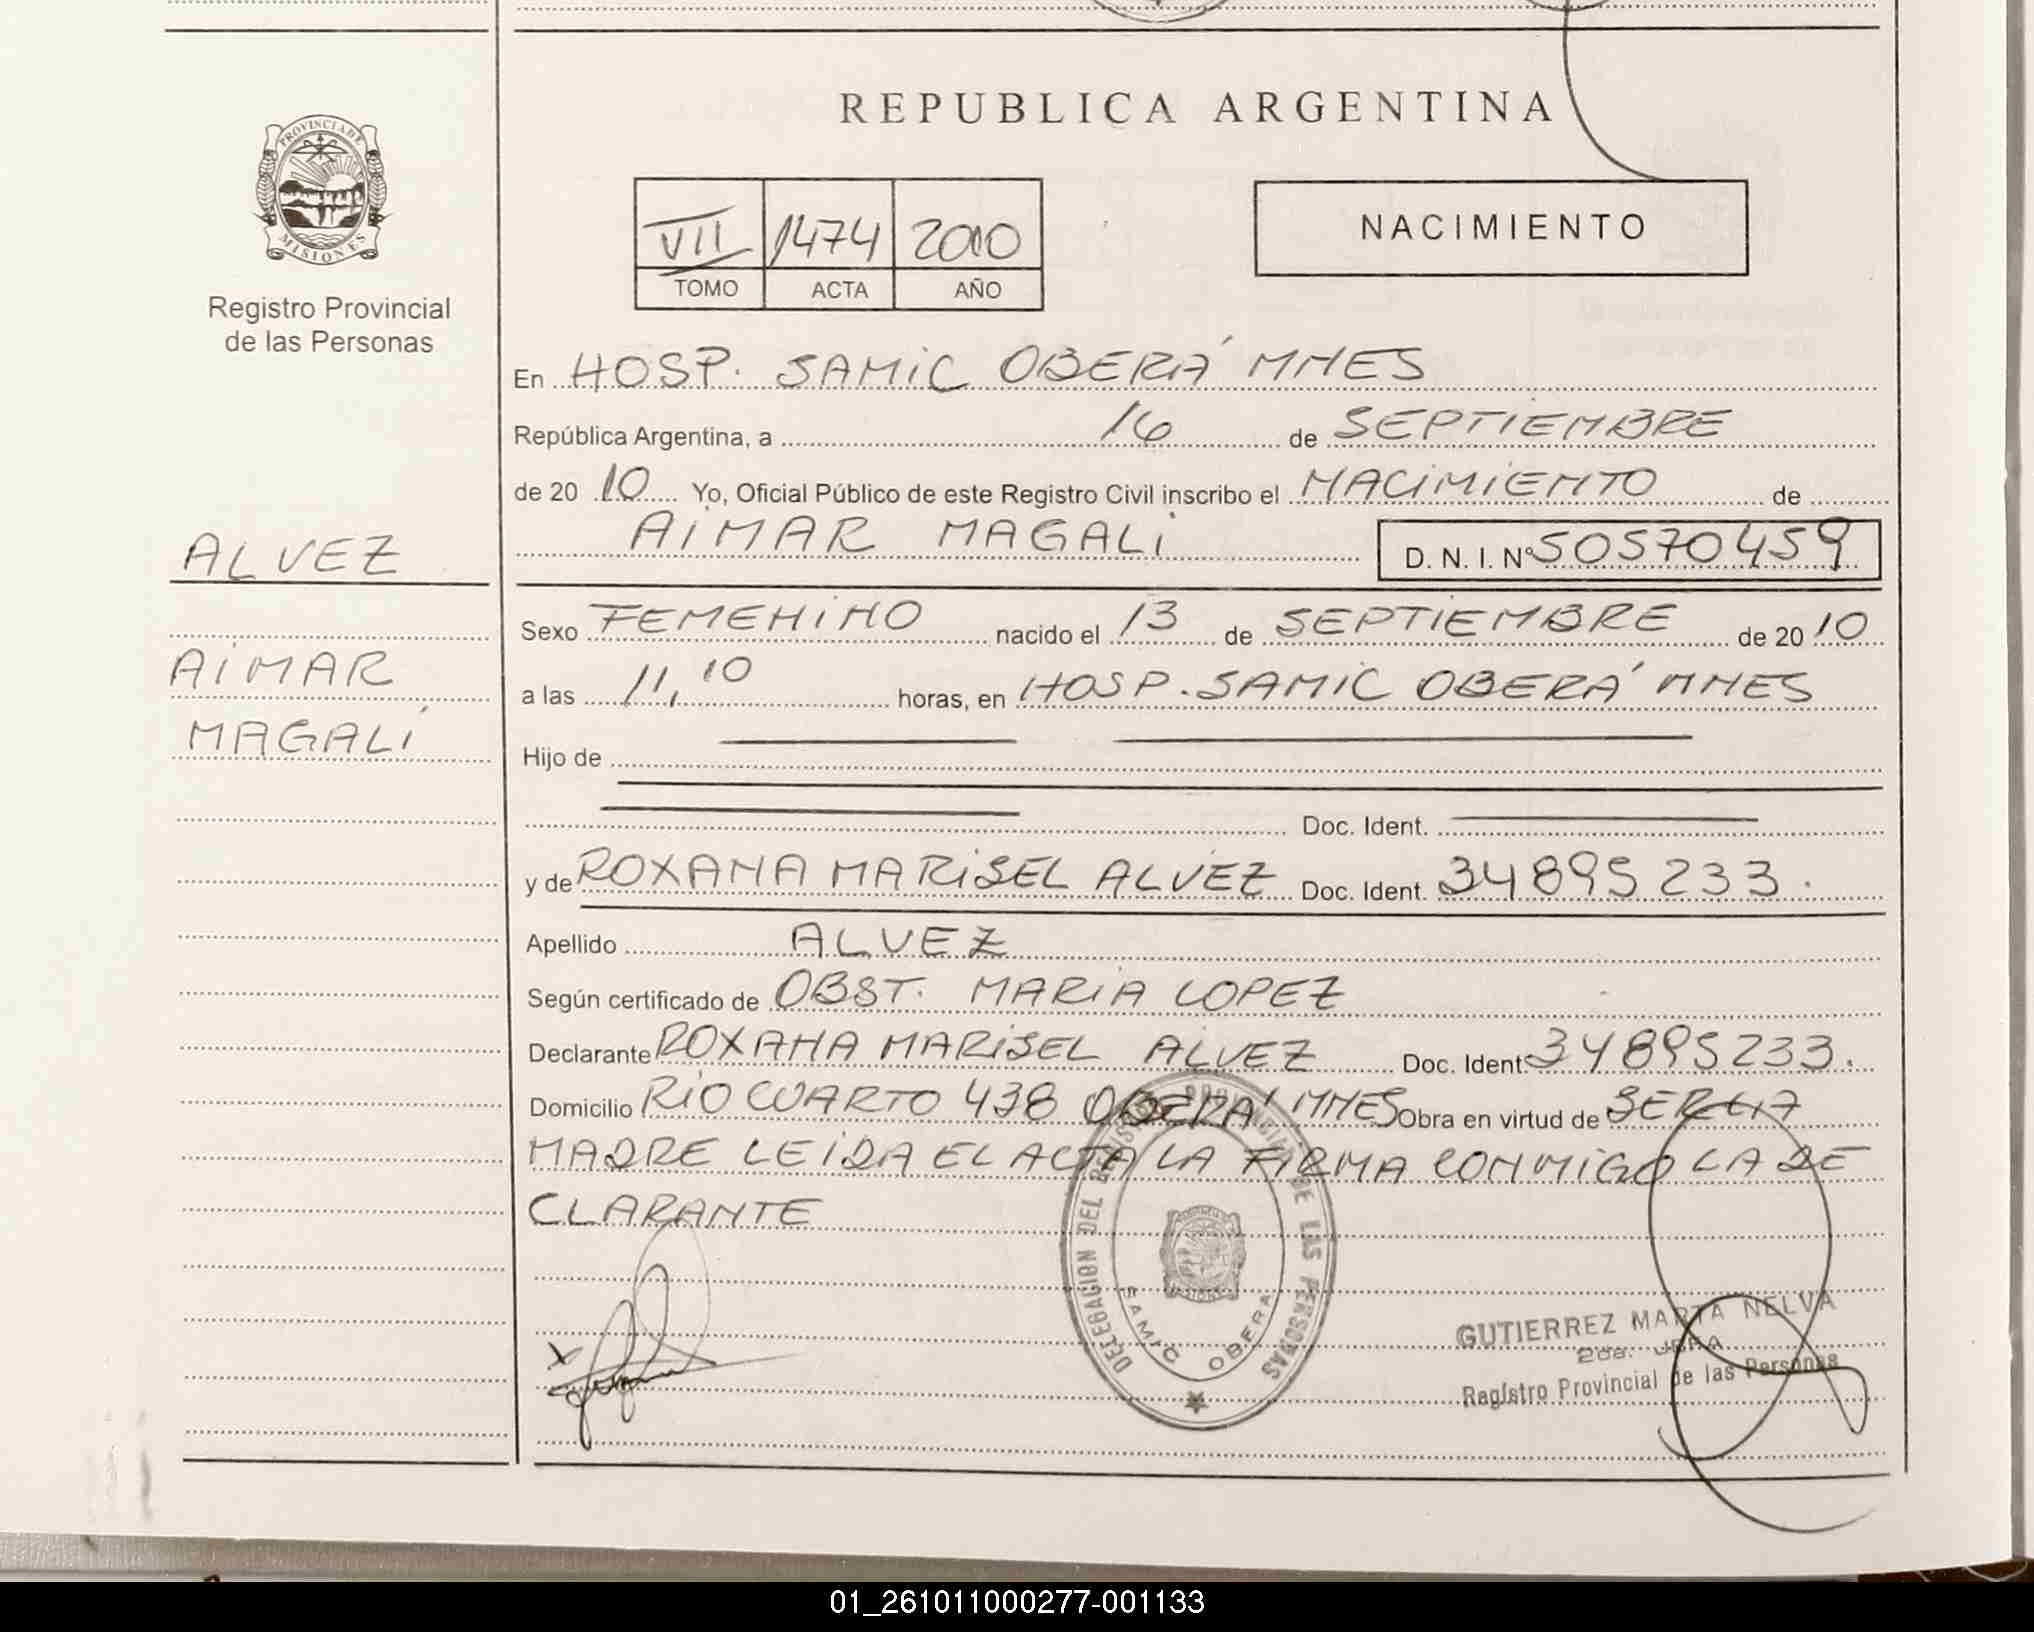 PROVINCIA DE
MISIONES
Registro Provincial
de las Personas
ALVEZ
AIMAR
MAGALI
REPUBLICA ARGENTINA
VII 1474 2010
TOMO ACTA AÑO
NACIMIENTO
En HOSP. SAMIC OBERÁ MNES
República Argentina, a 16 de SEPTIEMBRE
de 20 10 Yo, Oficial Público de este Registro Civil inscribo el NACIMIENTO de
AIMAR MAGALI D. N. I. Nº 50570459
Sexo FEMENINO nacido el 13 de SEPTIEMBRE de 20 10
a las 11,10 horas, en HOSP. SAMIC OBERÁ MNES
Hijo de
Doc. Ident.
y de ROXANA MARISEL ALVEZ Doc. Ident. 34895233.
Apellido ALVEZ
Según certificado de OBST. MARIA LOPEZ
Declarante ROXANA MARISEL ALVEZ Doc. Ident. 34895233.
Domicilio RIO CUARTO 438 OBERÁ MNES Obra en virtud de SER LA
MADRE LEIDA EL ACTA LA FIRMA CONMIGO LA DE
CLARANTE
DELEGACION DEL REGISTRO PROVINCIAL DE LAS PERSONAS
SAMIC OBERA
GUTIERREZ MARTA NELVA
2da. JEFA
Registro Provincial de las Personas
01_261011000277-001133